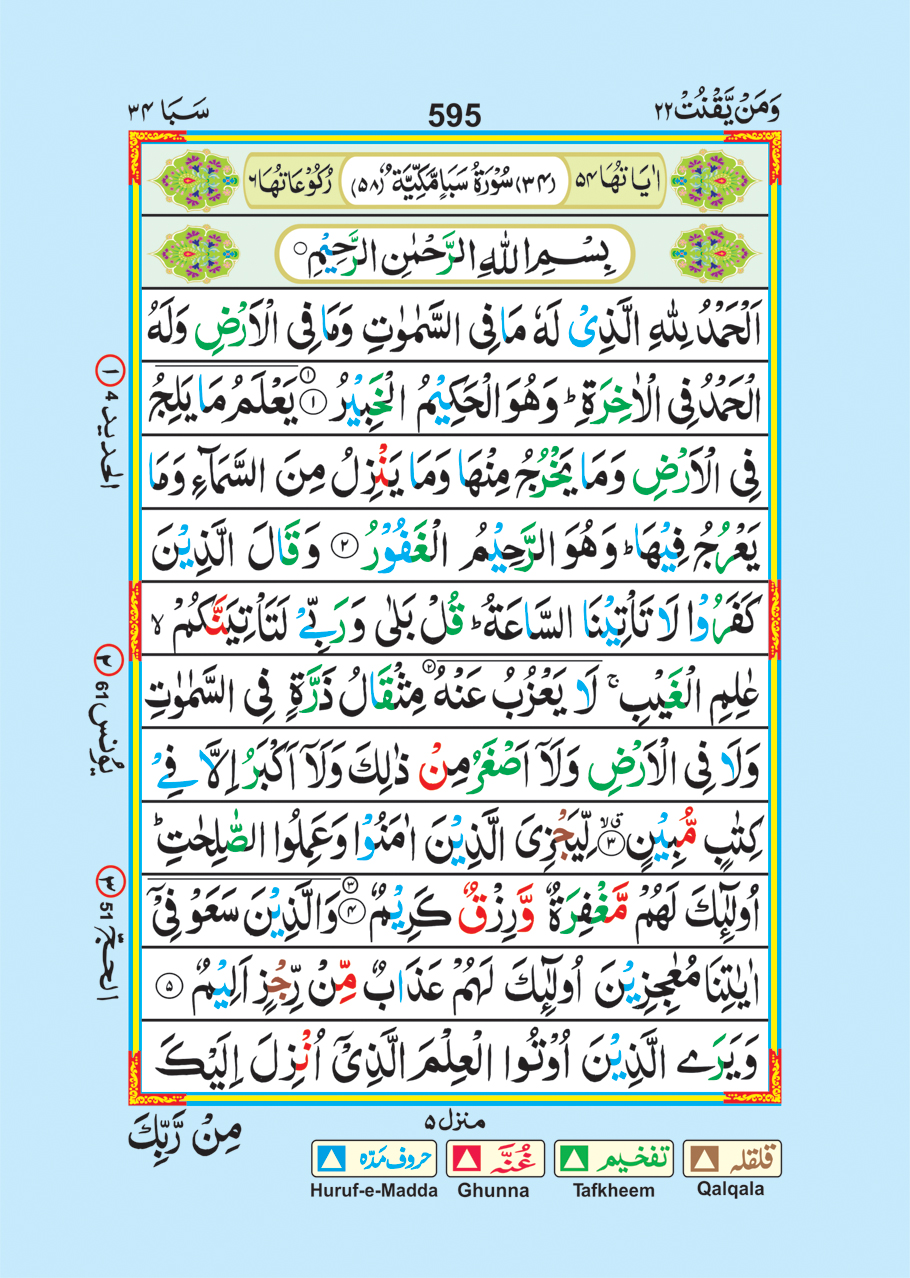 وَمَنْ يَّقْنُتْ ٢٢
595
سَبَا ٣۴
اٰيَاتُهَا ۵۴
(٣۴) سُوْرَةُ سَبَاٍ مَّكِّيَّةٌ (۵٨)
رُكُوْعَاتُهَا ٦
بِسْمِ اللّٰهِ الرَّحْمٰنِ الرَّحِيْمِ ○
اَلْحَمْدُ لِلّٰهِ الَّذِىْ لَهٗ مَا فِى السَّمٰوٰتِ وَمَا فِى الْاَرْضِ وَلَهُ
الْحَمْدُ فِى الْاٰخِرَةِ ؕ وَهُوَ الْحَكِيْمُ الْخَبِيْرُ ① ١ يَعْلَمُ مَا يَلِجُ
فِى الْاَرْضِ وَمَا يَخْرُجُ مِنْهَا وَمَا يَنْزِلُ مِنَ السَّمَآءِ وَمَا
يَعْرُجُ فِيْهَا ؕ وَهُوَ الرَّحِيْمُ الْغَفُوْرُ ٢ وَقَالَ الَّذِيْنَ
كَفَرُوْا لَا تَاْتِيْنَا السَّاعَةُ ؕ قُلْ بَلٰى وَرَبِّىْ لَتَاْتِيَنَّكُمْ ۙ
عٰلِمِ الْغَيْبِ ۚ لَا يَعْزُبُ عَنْهُ ② مِثْقَالُ ذَرَّةٍ فِى السَّمٰوٰتِ
وَلَا فِى الْاَرْضِ وَلَاۤ اَصْغَرُ مِنْ ذٰلِكَ وَلَاۤ اَكْبَرُ اِلَّا فِىْ
كِتٰبٍ مُّبِيْنٍ ٣ لِّيَجْزِىَ الَّذِيْنَ اٰمَنُوْا وَعَمِلُوا الصّٰلِحٰتِ ؕ
اُولٰٓئِكَ لَهُمْ مَّغْفِرَةٌ وَّرِزْقٌ كَرِيْمٌ ③ ۴ وَالَّذِيْنَ سَعَوْ فِىْۤ
اٰيٰتِنَا مُعٰجِزِيْنَ اُولٰٓئِكَ لَهُمْ عَذَابٌ مِّنْ رِّجْزٍ اَلِيْمٌ ۵
وَيَرَى الَّذِيْنَ اُوْتُوا الْعِلْمَ الَّذِىْۤ اُنْزِلَ اِلَيْكَ
١ الحديد 4
٢ يُونس 61
٣ الحجّ 51
منزل ۵
مِنْ رَّبِّكَ
حروف مدّه
غُنَّه
تفخيم
قلقله
Huruf-e-Madda
Ghunna
Tafkheem
Qalqala